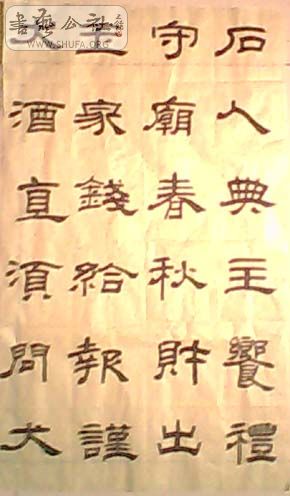 書藝公社
WWW.SHUFA.ORG
石人典主饗禮
守廟春秋財出
王家錢給報謹
酒直須問犬